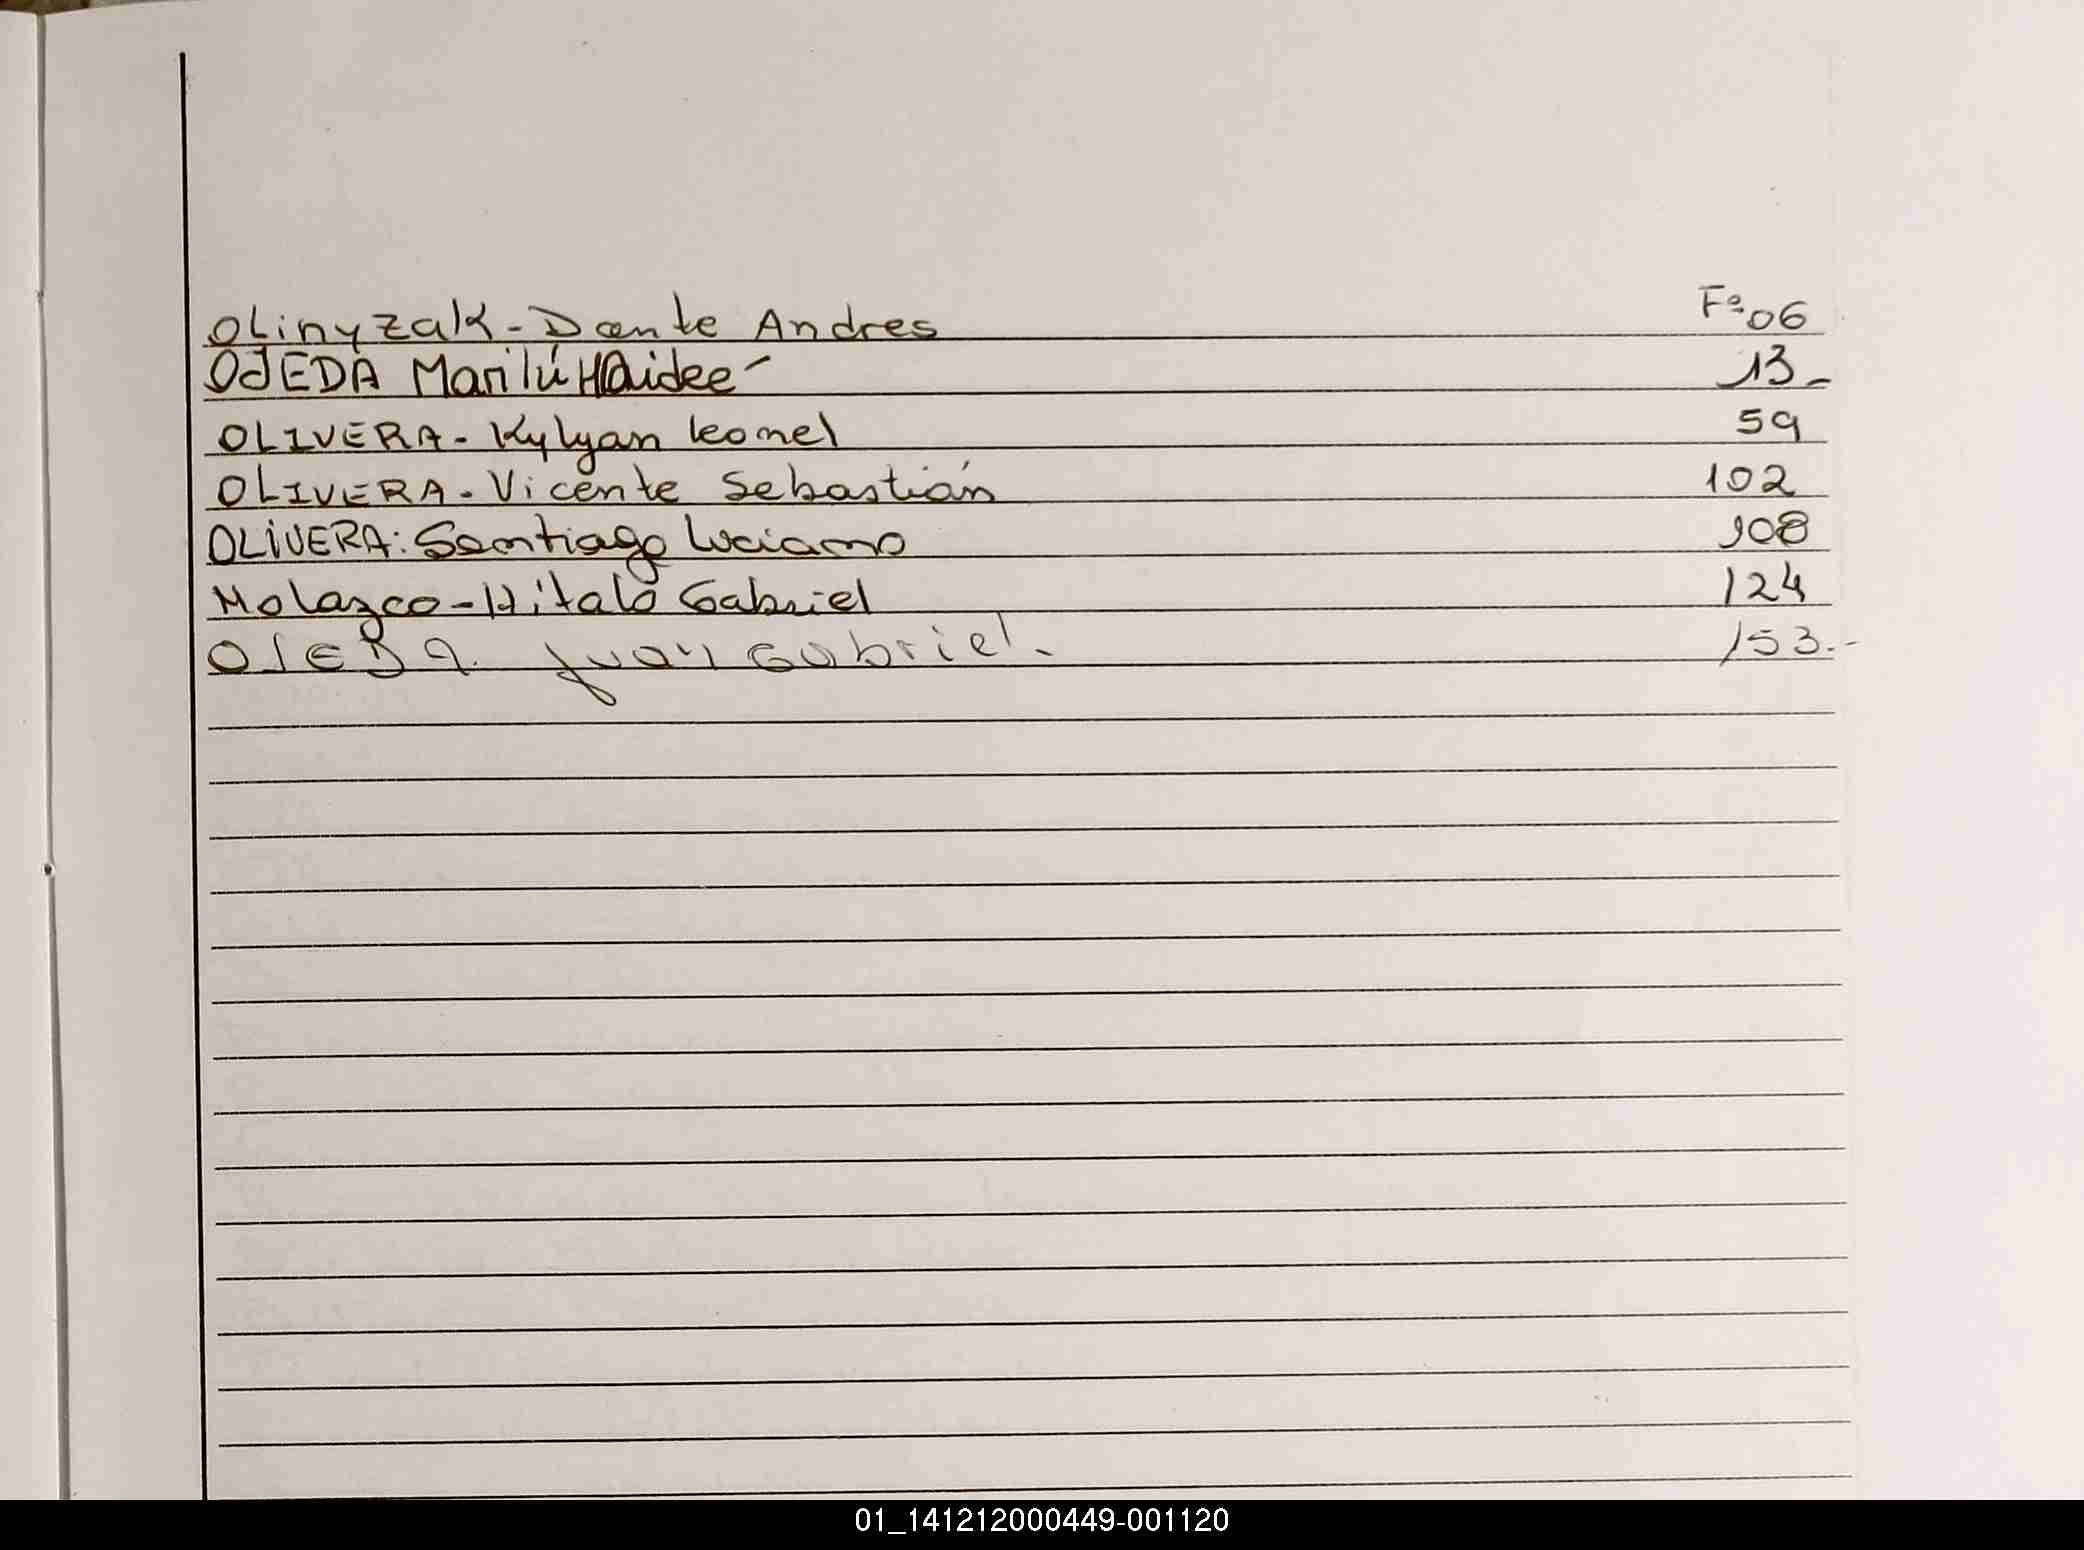 OLinyzak - Dante Andres Fº 06
OJEDA Marilú Haideé 13-
OLIVERA - Kylyan Leonel 59
OLIVERA - Vicente Sebastián 102
OLIVERA: Santiago Luciano 108
Molazco - Hitalo Gabriel 124
OJEDA Juan Gabriel. 153.-
01_141212000449-001120